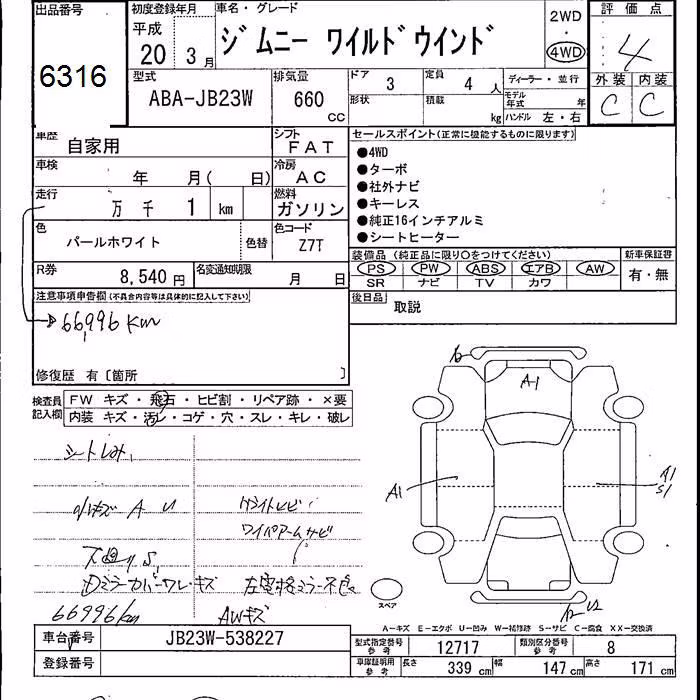 出品番号
6316
初度登録年月
平成
20 3月
車名・グレード
ジムニー ワイルドウインド
2WD
・
4WD
評価点
4
外装 内装
C C
型式
ABA-JB23W
排気量
660
CC
ドア 3
形状
定員 4 人
積載 kg
ディーラー・並行
モデル年式 年
ハンドル 左・右
車歴 自家用
シフト FAT
車検 年 月( 日)
冷房 AC
走行 万 千 1 km
燃料 ガソリン
色 パールホワイト
色替
色コード Z7T
R券 8,540 円
名変通知期限 月 日
セールスポイント(正常に機能するものに限ります)
●4WD
●ターボ
●社外ナビ
●キーレス
●純正16インチアルミ
●シートヒーター
装備品 (純正品に限り○をつけてください)
PS PW ABS エアB AW
SR ナビ TV カワ
新車保証書
有・無
後日品 取説
注意事項申告欄(不具合内容等は具体的に記入して下さい)
66,996 km
修復歴 有〔箇所 〕
検査員記入欄
FW キズ・飛石・ヒビ割・リペア跡・×要
内装 キズ・汚レ・コゲ・穴・スレ・キレ・破レ
シートしみ
A U
ワイパアームサビ
S
ミラーカバーワレ・キズ
左電格ミラー不良
66996km
AWキズ
A-1
A1
A1
S1
U2
スペア
A-キズ E-エクボ U-凹み W-補修跡 S-サビ C-腐食 XX-交換済
車台番号 JB23W-538227
登録番号
型式指定番号 参考 12717
類別区分番号 参考 8
車庫証明用 参考
長さ 339 cm
幅 147 cm
高さ 171 cm